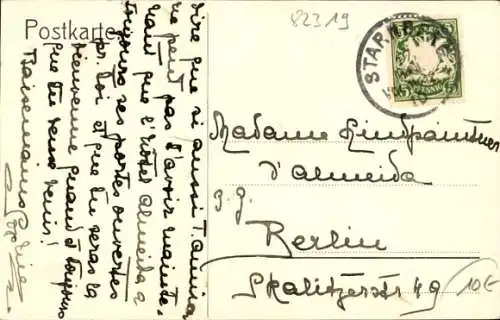 Postkarte
82319
STARNBERG
dire que si aussi T. Anna
ne peut pas t'avoir mainte-
nant que l'hôtel Almeida a
toujours ses portes ouvertes
pr. toi et que tu seras la
bienvenue quand et toujours
que tu veux venir!
Baisemains
Madame Lindpaintner
d'Almeida
Berlin
Skalitzerstr 49
10E